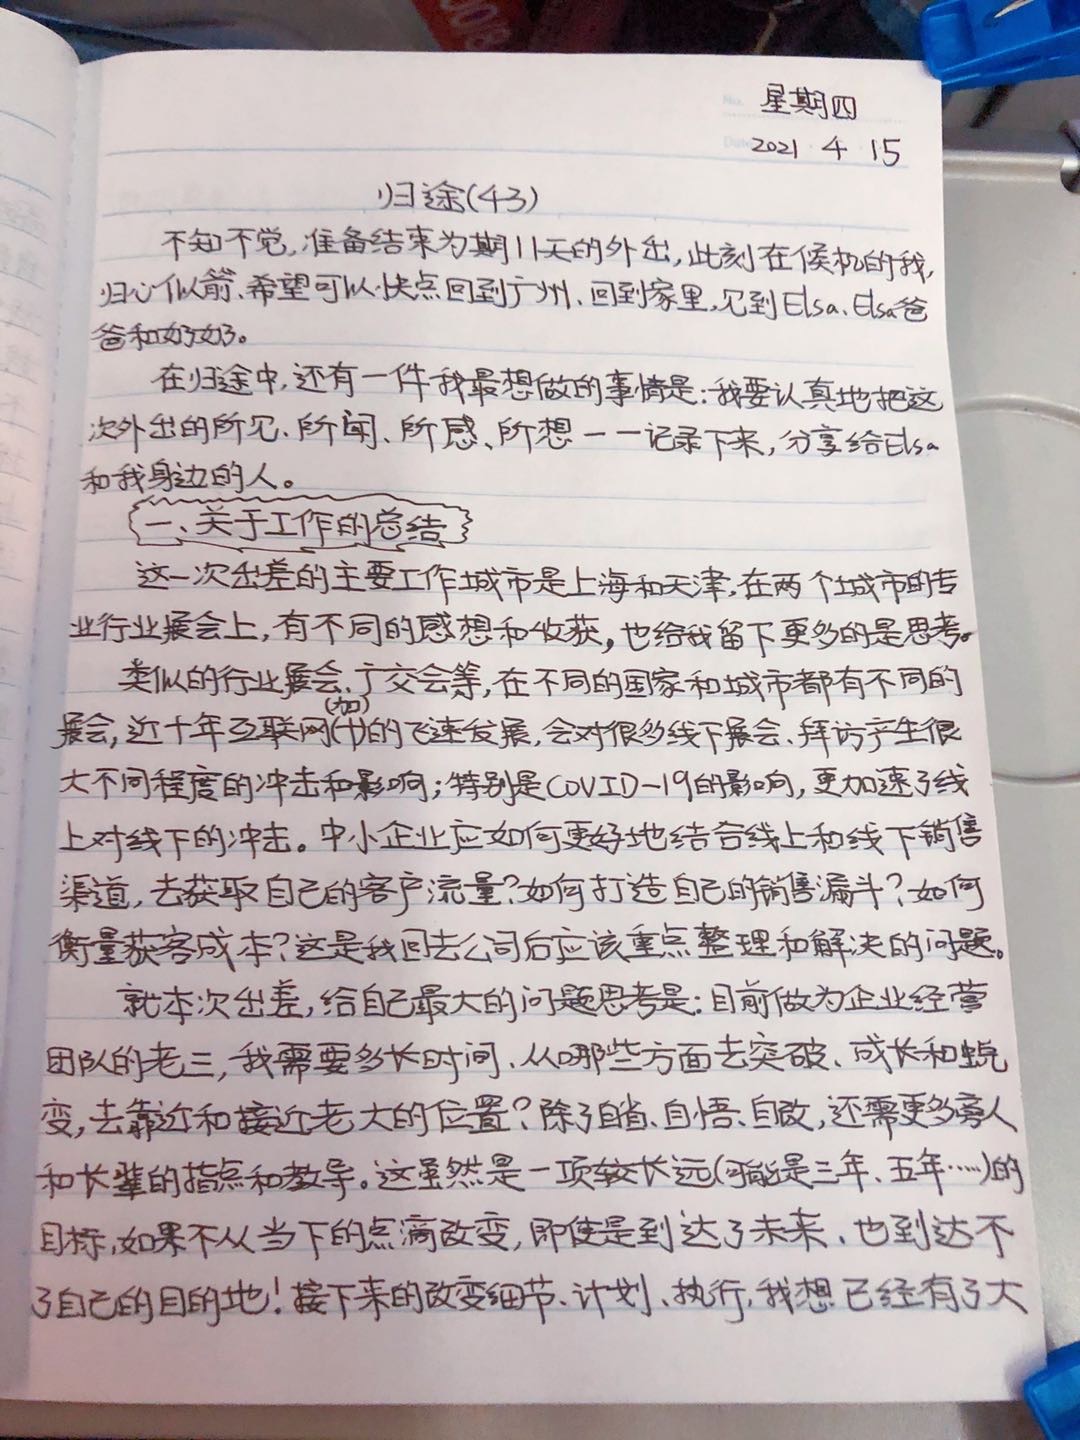 星期四
2021 4 15
归途(43)
不知不觉,准备结束为期11天的外出,此刻在候机的我,
归心似箭、希望可以快点回到广州、回到家里,见到Elsa、Elsa爸
爸和奶奶。
在归途中,还有一件我最想做的事情是:我要认真地把这
次外出的所见、所闻、所感、所想一一记录下来,分享给Elsa
和我身边的人。
一、关于工作的总结
这一次出差的主要工作城市是上海和天津,在两个城市的专
业行业展会上,有不同的感想和收获,也给我留下更多的是思考。
类似的行业展会、广交会等,在不同的国家和城市都有不同的
(加)
展会,近十年互联网(+)的飞速发展,会对很多线下展会、拜访产生很
大不同程度的冲击和影响;特别是COVID-19的影响,更加速了线
上对线下的冲击。中小企业应如何更好地结合线上和线下销售
渠道,去获取自己的客户流量?如何打造自己的销售漏斗?如何
衡量获客成本?这是我回去公司后应该重点整理和解决的问题。
就本次出差,给自己最大的问题思考是:目前做为企业经营
团队的老三,我需要多长时间、从哪些方面去突破、成长和蜕
变,去靠近和接近老大的位置?除了自省、自悟、自改,还需更多旁人
和长辈的指点和教导。这虽然是一项较长远(可能是三年、五年……)的
目标,如果不从当下的点滴改变,即使是到达了未来、也到达不
了自己的目的地!接下来的改变细节、计划、执行,我想已经有了大